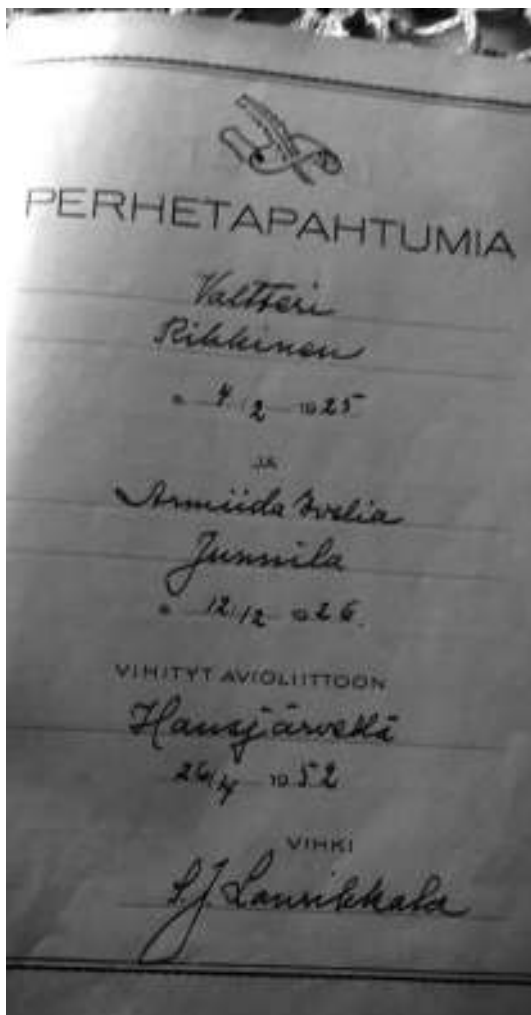 PERHETAPAHTUMIA
Valtteri
Rikkinen
4/2 1925
JA
Armiida Ivelia
Junnila
12/12 26.
VIHITYT AVIOLIITTOON
Hausjärvellä
26/4 1952
VIHKI
S.J. Laurikkala